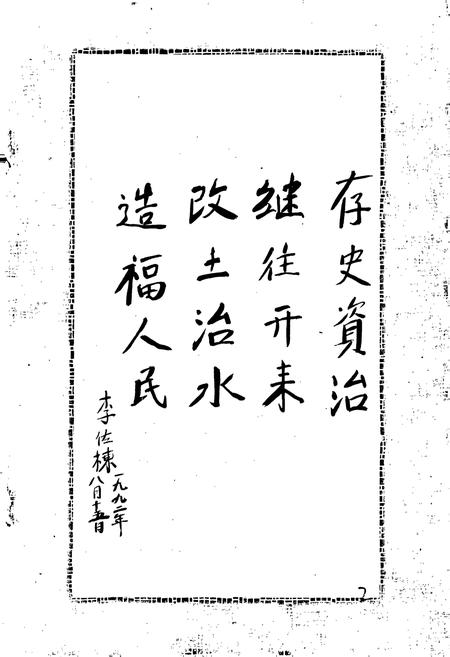 存史資治
继往开来
改土治水
造福人民
李佐栋
一九九二年
八月十五日
2